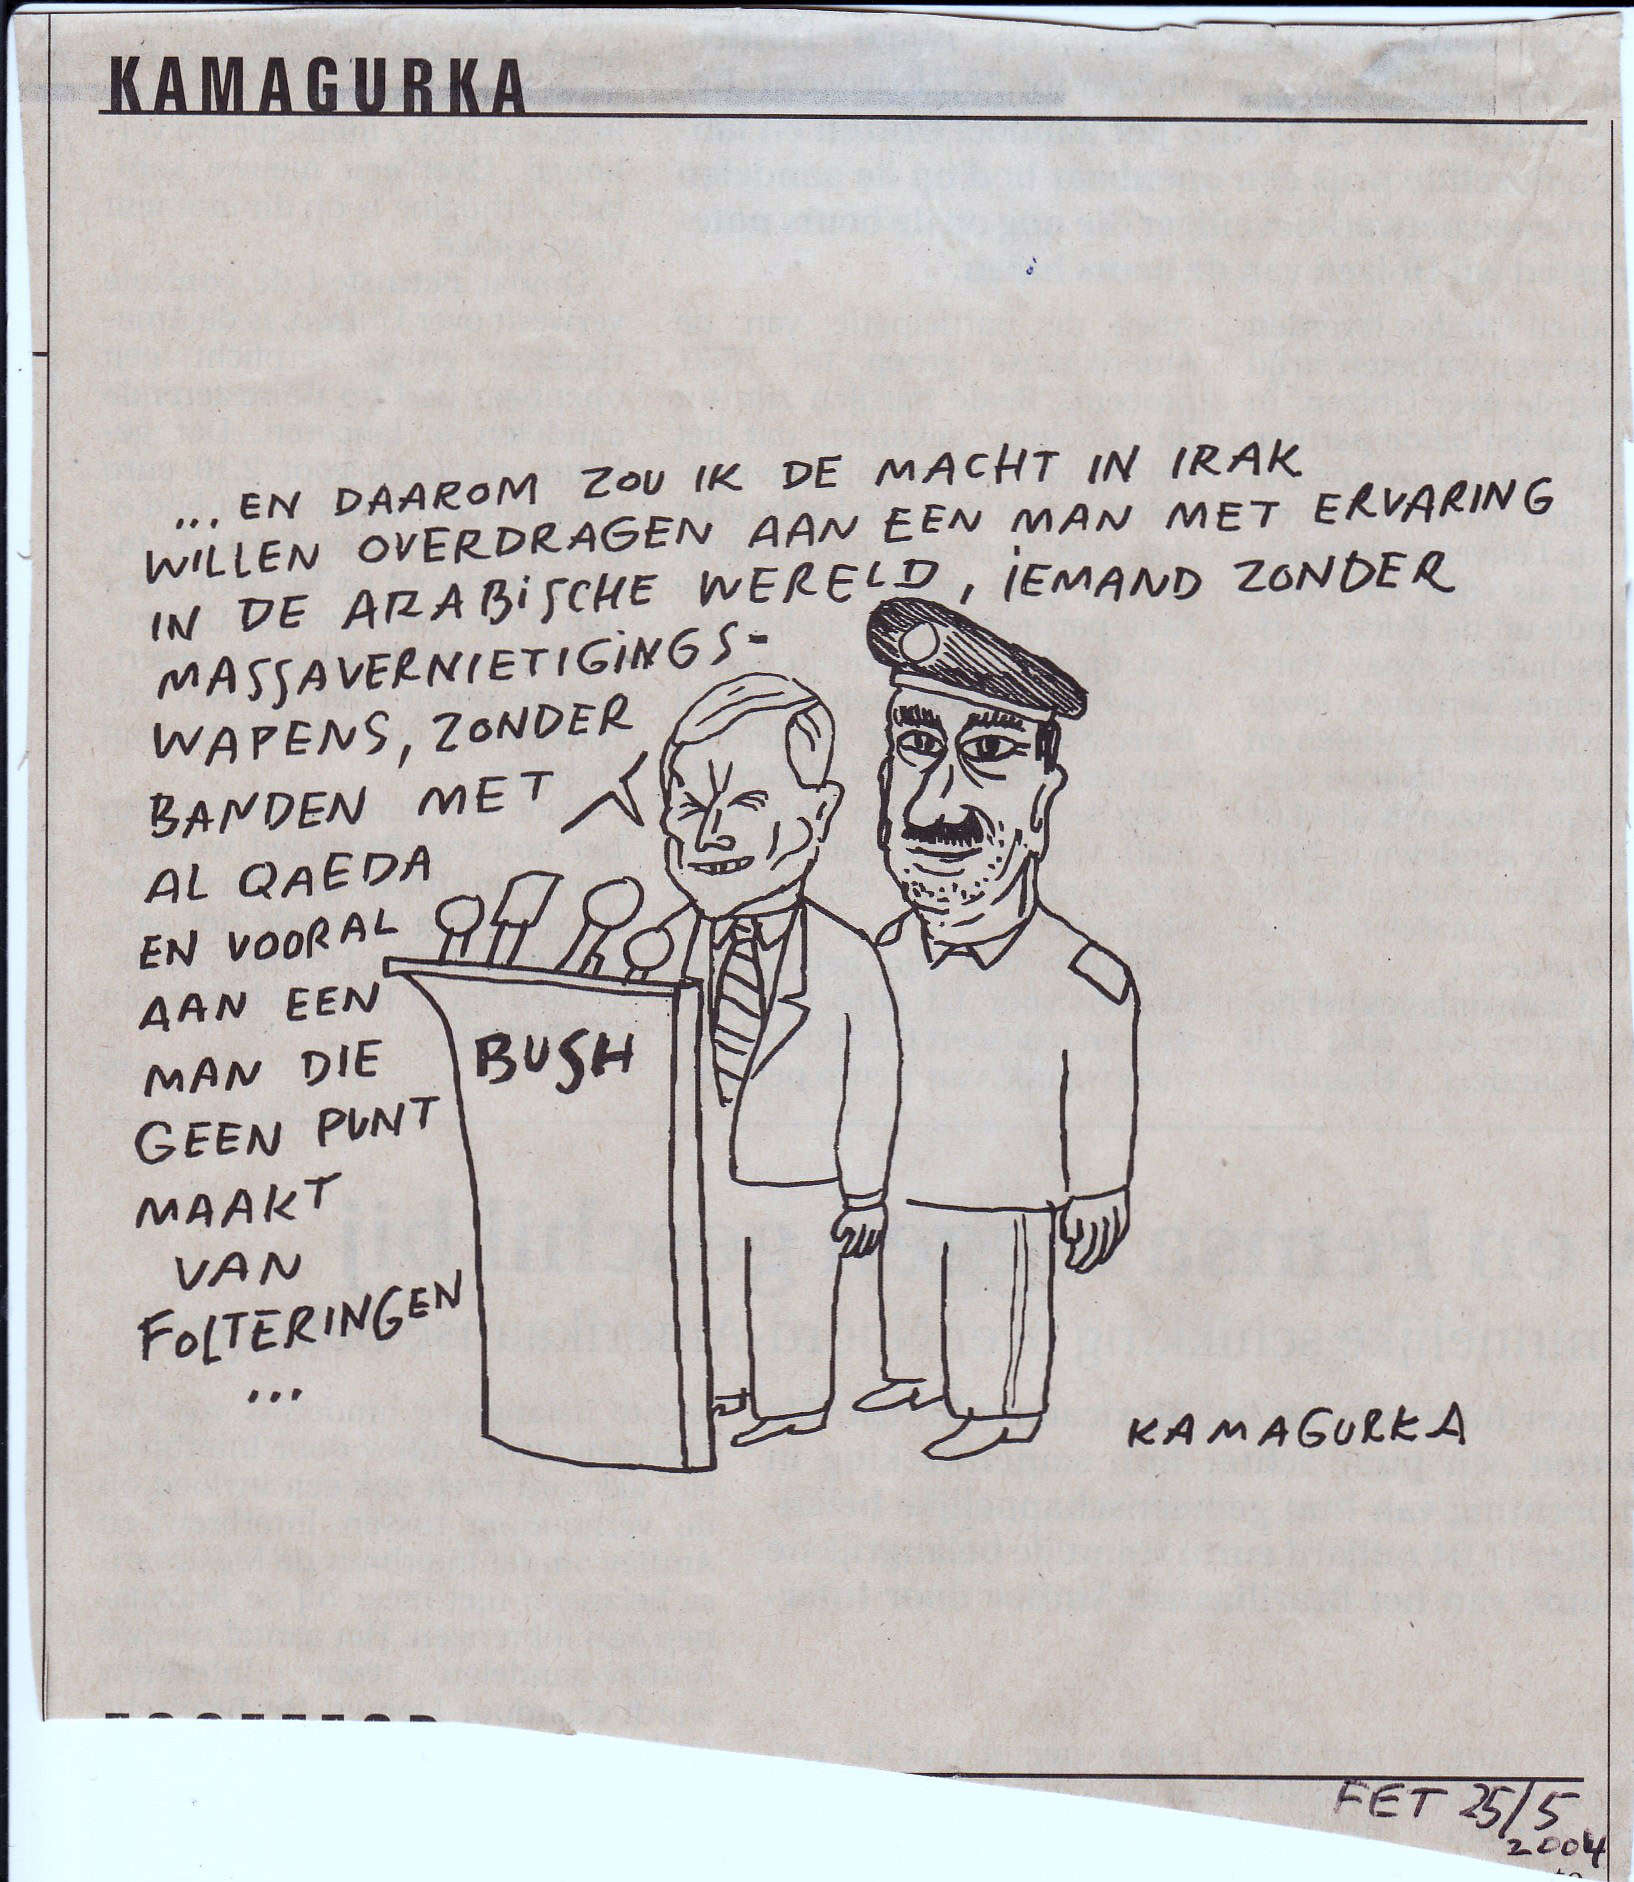 KAMAGURKA
...EN DAAROM ZOU IK DE MACHT IN IRAK
WILLEN OVERDRAGEN AAN EEN MAN MET ERVARING
IN DE ARABISCHE WERELD, IEMAND ZONDER
MASSAVERNIETIGINGS-
WAPENS, ZONDER
BANDEN MET
AL QAEDA
EN VOORAL
AAN EEN
MAN DIE
GEEN PUNT
MAAKT
VAN
FOLTERINGEN
...
BUSH
KAMAGURKA
FET 25/5
2004